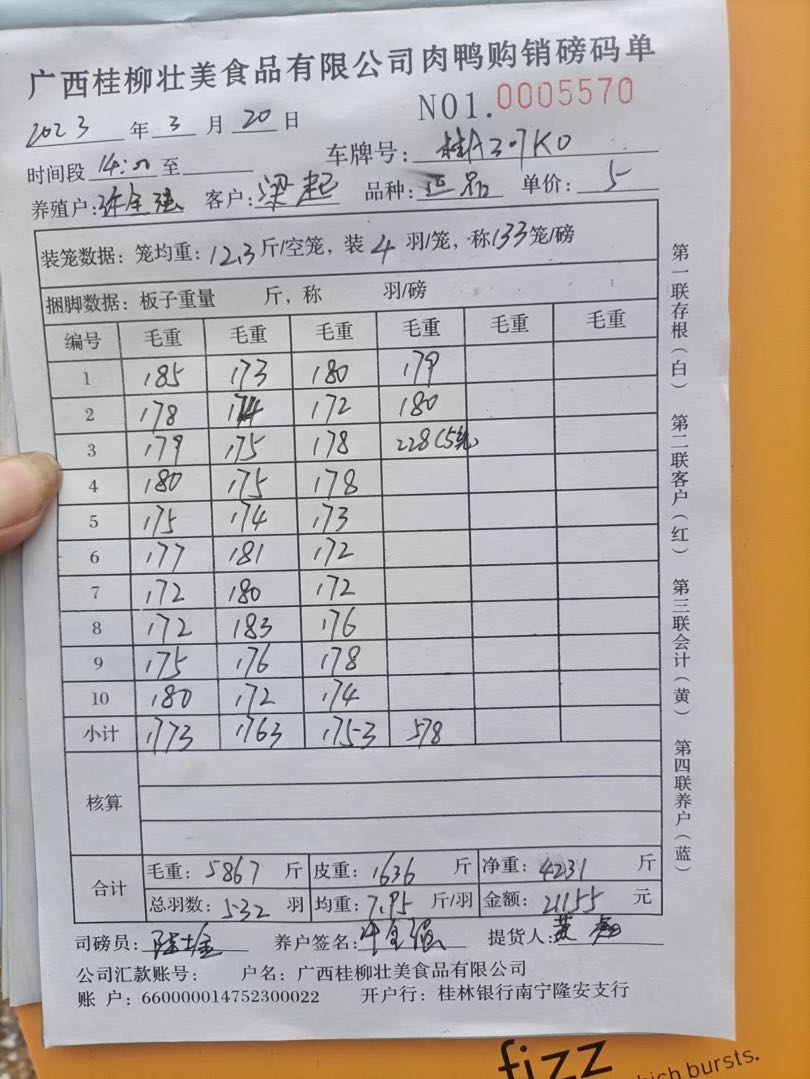 广西桂柳壮美食品有限公司肉鸭购销磅码单
NO1.0005570
2023年3月20日
时间段14:00至 车牌号:
养殖户: 客户:梁起 品种: 单价:5
装笼数据:笼均重:12.3斤/空笼,装4羽/笼,称133笼/磅
捆脚数据:板子重量 斤,称 羽/磅
编号 毛重 毛重 毛重 毛重 毛重 毛重
1 185 173 180 179
2 178 174 172 180
3 179 175 178 228(5笼)
4 180 175 178
5 175 174 173
6 177 181 172
7 172 180 172
8 172 183 176
9 175 176 178
10 180 172 174
小计 1773 1763 1753 578
核算
合计 毛重:5867斤 皮重:1636斤 净重:4231斤
总羽数:532羽 均重:7.95斤/羽 金额:21155元
司磅员: 养户签名: 提货人:
公司汇款账号: 户名:广西桂柳壮美食品有限公司
账 户:660000014752300022 开户行:桂林银行南宁隆安支行
第一联存根(白) 第二联客户(红) 第三联会计(黄) 第四联养户(蓝)
fizz
which bursts.